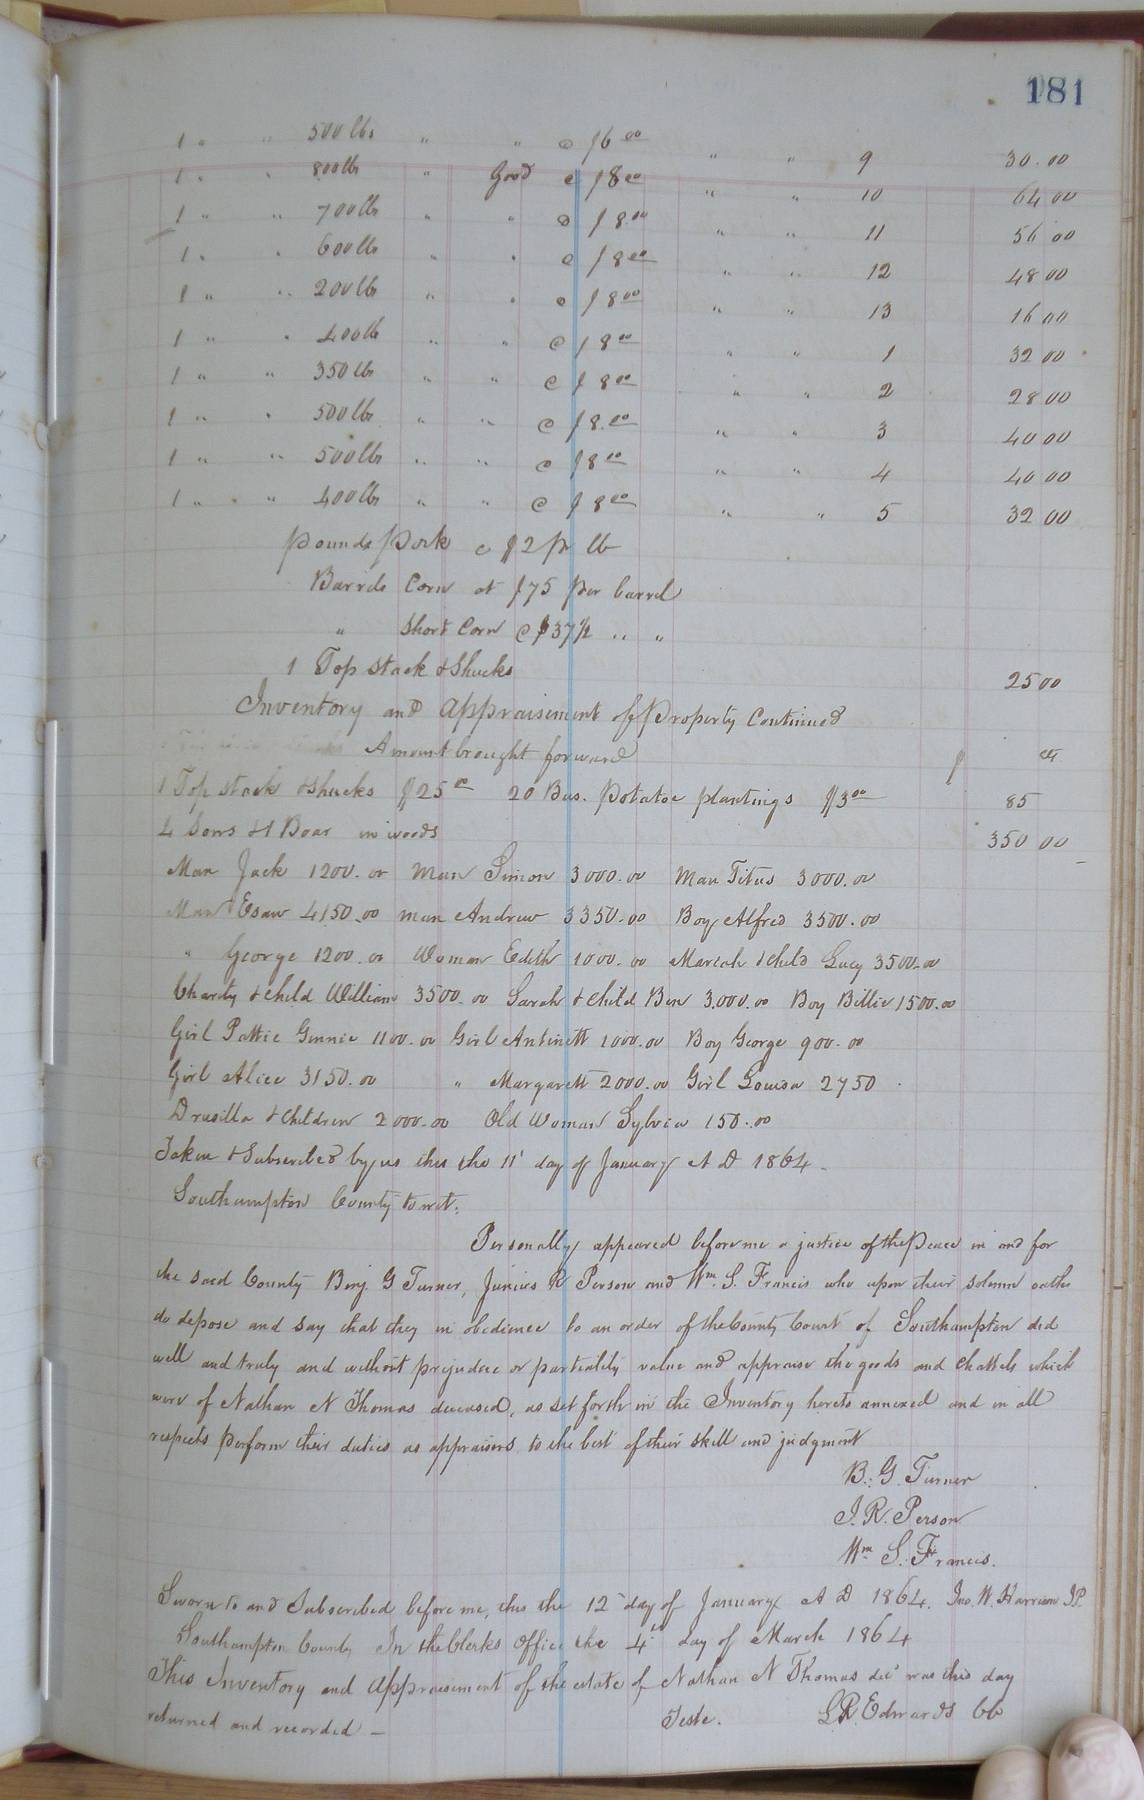 181
1 " " 500 lbs " " @ $6 00 " " 9 30.00
1 " " 800 lb " Good @ $8 00 " " 10 64 00
1 " " 700 lbs " " @ $8.00 " " 11 56 00
1 " " 600 lb " " @ $8 00 " " 12 48 00
1 " " 200 lbs " " @ $8 00 " " 13 16 00
1 " " 400 lb " " @ $8 00 " " 1 32 00
1 " " 350 lbs " " @ $8 00 " " 2 28 00
1 " " 500 lbs " " @ $8.00 " " 3 40 00
1 " " 500 lbs " " @ $8 00 " " 4 40 00
1 " " 400 lbs " " @ $8 00 " " 5 32 00
Pounds Pork @ $2 pr lb
Barrels Corn at $75 Per barrel
" Short Corn @ $37 1/2 " "
1 Top stack & Shucks 25 00
Inventory and Appraisement of Property Continued
Amount brought forward $
1 Top stack & Shucks $25 00 20 Bus. Potatoe plantings $3 00 85
4 Sows & 1 Boar in woods 350 00
Man Jack 1200.00 Man Simon 3000.00 Man Titus 3000.00
Man Esaw 4150.00 man Andrew 3350.00 Boy Alfred 3500.00
" George 1200.00 Woman Edith 1000.00 Mariah & child Lucy 3500.00
Charity & child William 3500.00 Sarah & Child Ben 3,000.00 Boy Billie 1500.00
Girl Pattie Ginnie 1100.00 Girl Antinett 1000.00 Boy George 900.00
Girl Alice 3150.00 " Margarett 2000.00 Girl Louisa 2750
Drusilla & Children 2000.00 Old Woman Sylvia 150.00
Taken & Subscribed by us this the 11' day of January A D 1864
Southampton County to wit:
Personally appeared before me a justice of the Peace in and for
the said County Benj. G Turner, Junius R Person and Wm. S. Francis who upon their solemn oaths
do depose and say that they in obedience to an order of the County Court of Southampton did
well and truly and without prejudice or partiality value and appraise the goods and chattels which
were of Nathan N Thomas deceased, as set forth in the Inventory hereto annexed and in all
respects perform their duties as appraisers to the best of their skill and judgment
B. G. Turner
J. R. Person
Wm S. Francis.
Sworn to and Subscribed before me, this the 12 day of January A D 1864. Jno. W. Harrison J.P.
Southampton County In the Clerks Office the 4th day of March 1864
This Inventory and Appraisement of the estate of Nathan N Thomas dec' was this day
returned and recorded — Teste. L R Edwards CC